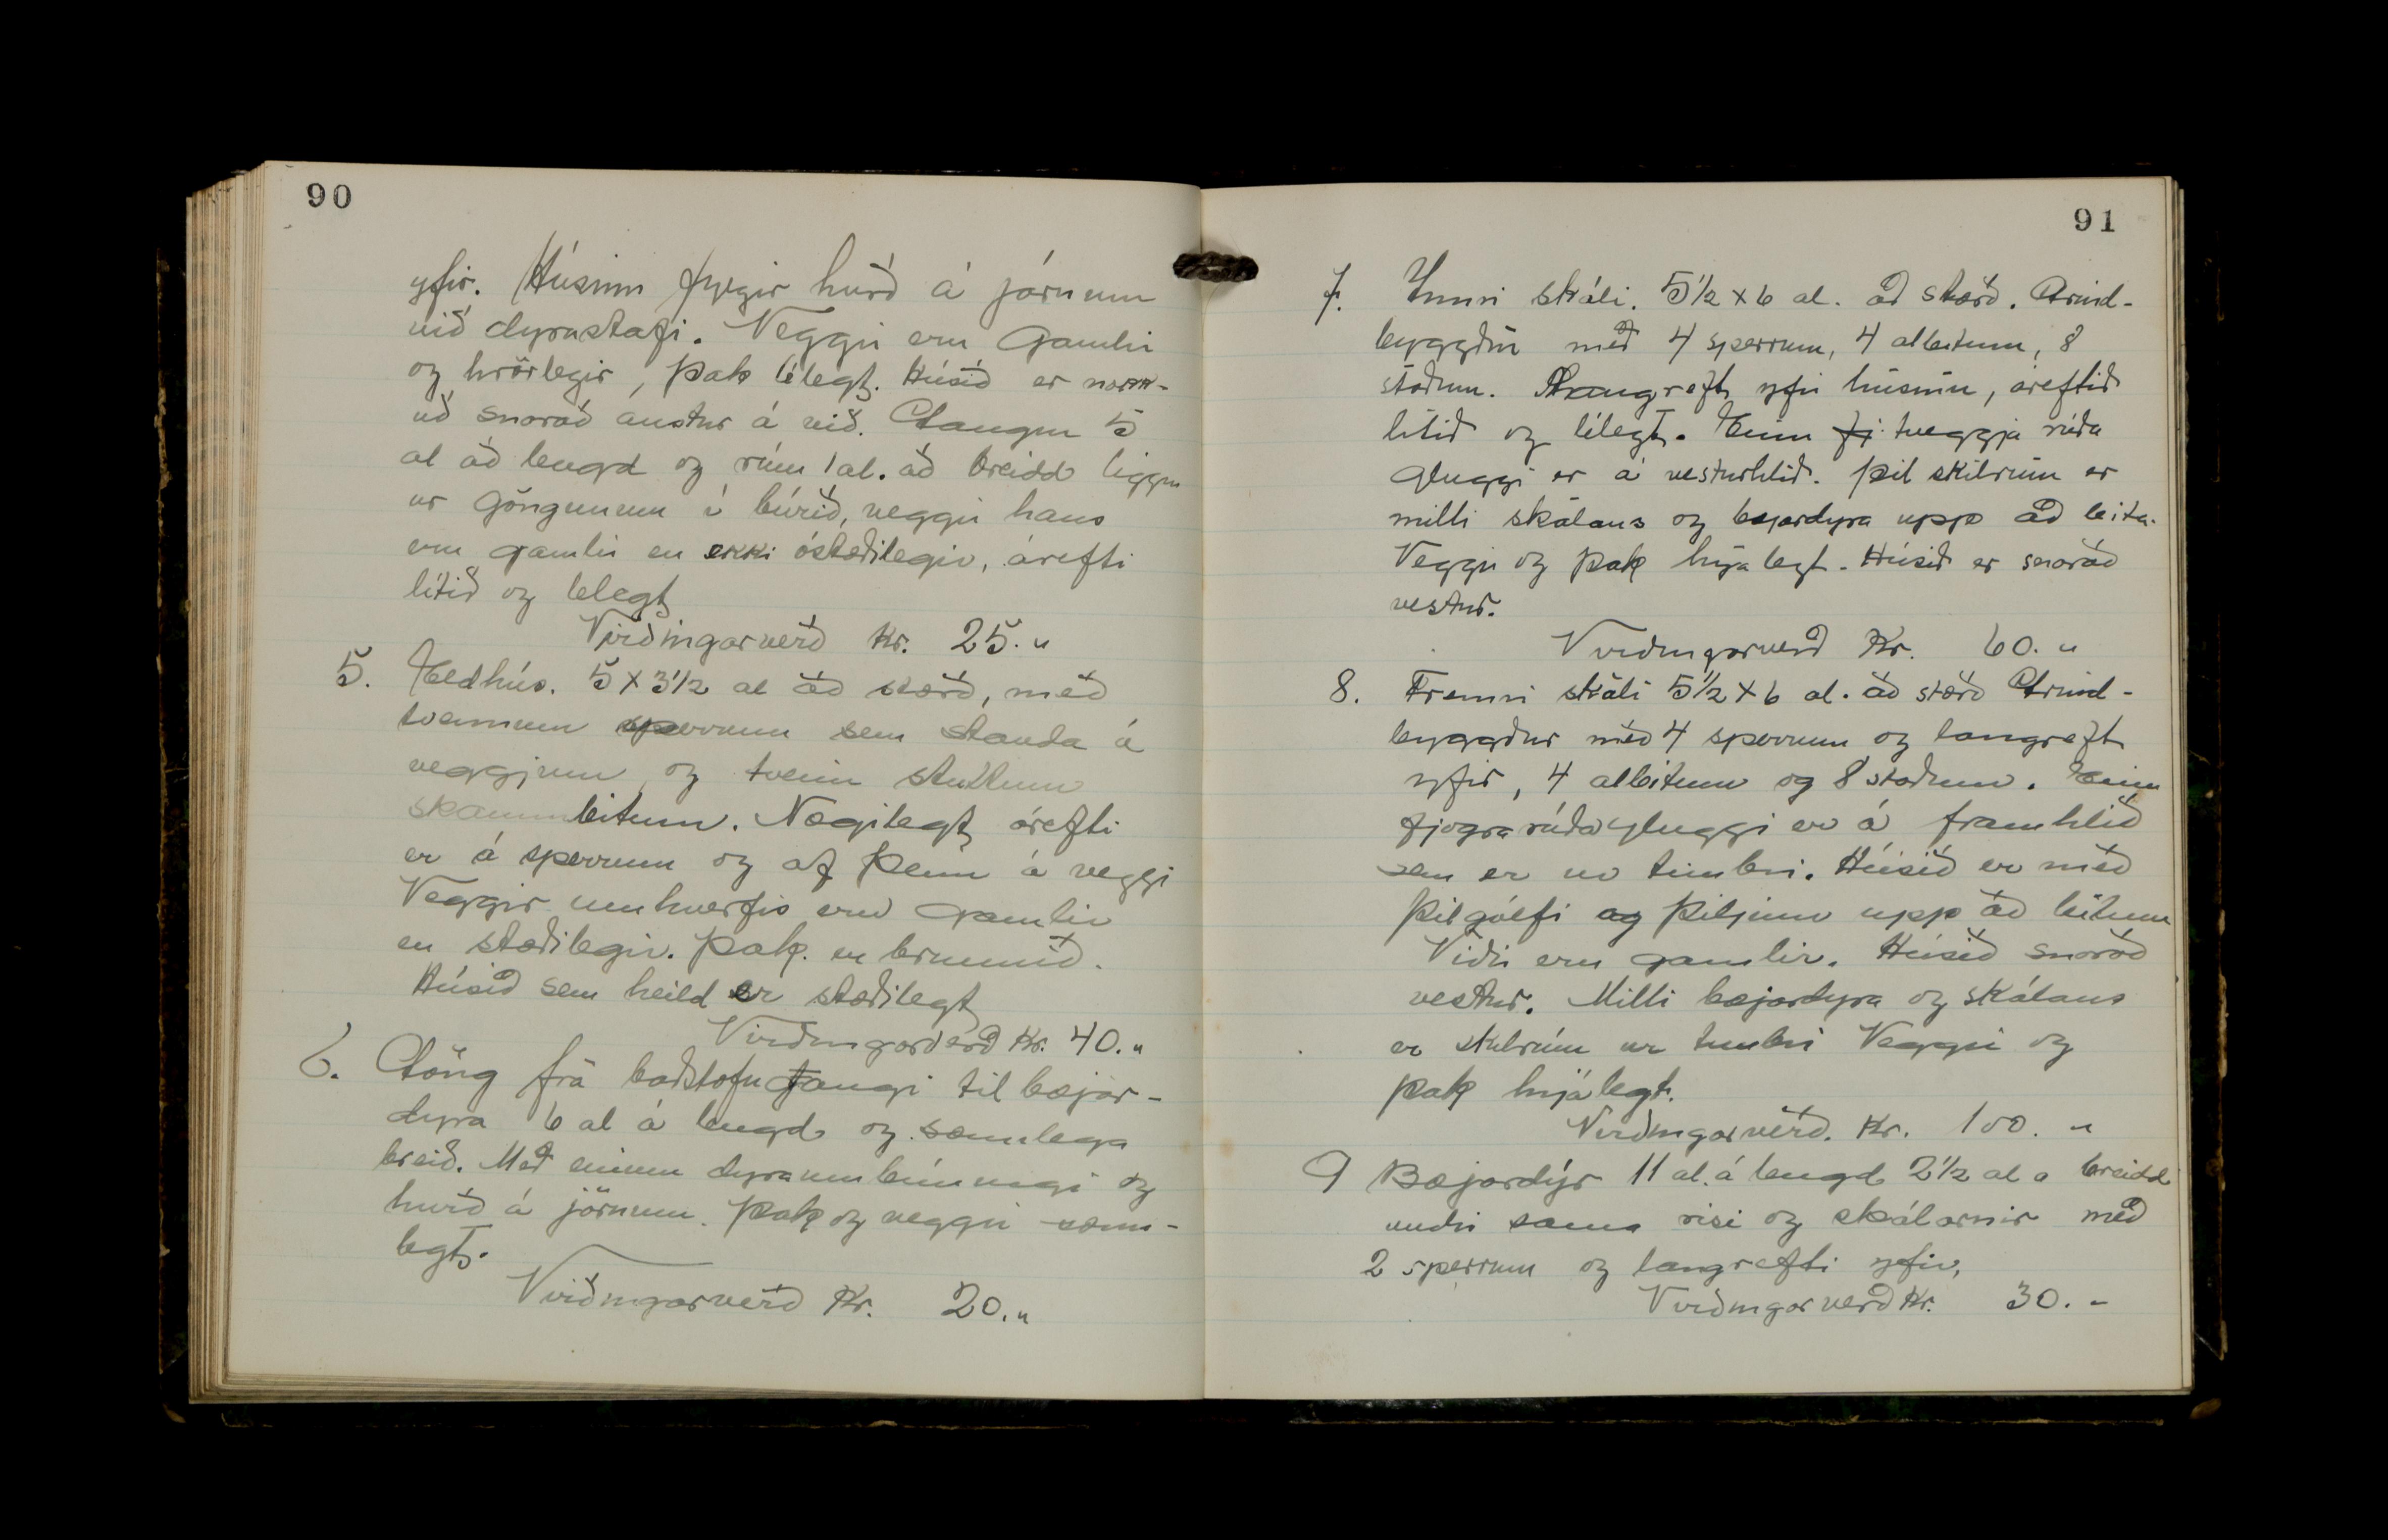 90
yfir. Húsinu fylgir hurð á járnum
við dyrustafi. Veggir eru gamlir
og hrörlegir, þak lélegt. Húsið er nokk-
uð snarað austur á við. Gangur 5
al að lengd og rúm 1 al. að breidd liggur
úr göngunum í búrið, veggir hans
eru gamlir en ekki óstæðilegir, árefti
lítið og lélegt
Virðingarverð Kr. 25.„
5. Eldhús. 5 x 3½ al að stærð, með
tvennum sperrum sem standa á
veggjum og tveim stuttum
skammbitum. Nægilegt árefti
er á sperrum og af þeim á veggi
Veggir umhverfis eru gamlir
en stæðilegir. Þak er brunnið.
Húsið sem heild er stæðilegt
Virðingarverð Kr. 40.„
6. Göng frá baðstofugangi til bæjar-
dyra 6 al á lengd og sæmilega
breið. Með einum dyraumbúningi og
hurð á járnum. Þak og veggir sæmi-
legt.
Virðingarverð Kr. 20.„
91
7. Innri skáli. 5½ x 6 al. að stærð. Grind-
byggður með 4 sperrum, 4 albitum, 8
stoðum. Langreft yfir húsinu, áreftið
lítið og lélegt. Einn fj. tveggja rúða
gluggi er á vesturhlið. Þil skilrúm er
milli skálans og bæjardyra upp að bita.
Veggir og þak hrjálegt. Húsið er snarað
vestur.
Virðingarverð Kr. 60.„
8. Fremri skáli 5½ x 6 al. að stærð Grind-
byggður með 4 sperrum og langreft
yfir, 4 albitum og 8 stoðum. Einn
fjogra rúðu gluggi er á framhlið
sem er úr timbri. Húsið er með
þilgólfi og þiljum upp að bitum
Viðir eru gamlir. Húsið snarað
vestur. Milli bæjardyra og skálans
er skilrúm úr timbri Veggir og
þak hrjálegt.
Virðingarverð. Kr. 100.„
9 Bæjardýr 11 al. á lengd 2½ al a breidd
undir sama risi og skálarnir með
2 sperrum og langrefti yfir,
Virðingarverð Kr. 30.-